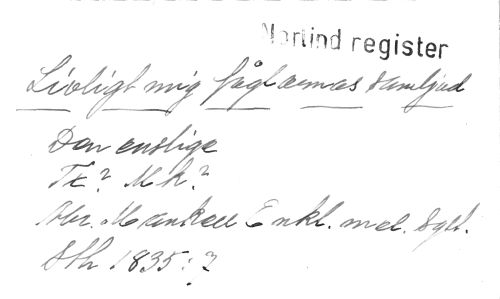 Norlind register
Livligt mig fåglarnas samljud
Den enslige
Tx? Mk?
Abr. Mankell Enkl. mel. Sgst.
Sth 1835:2